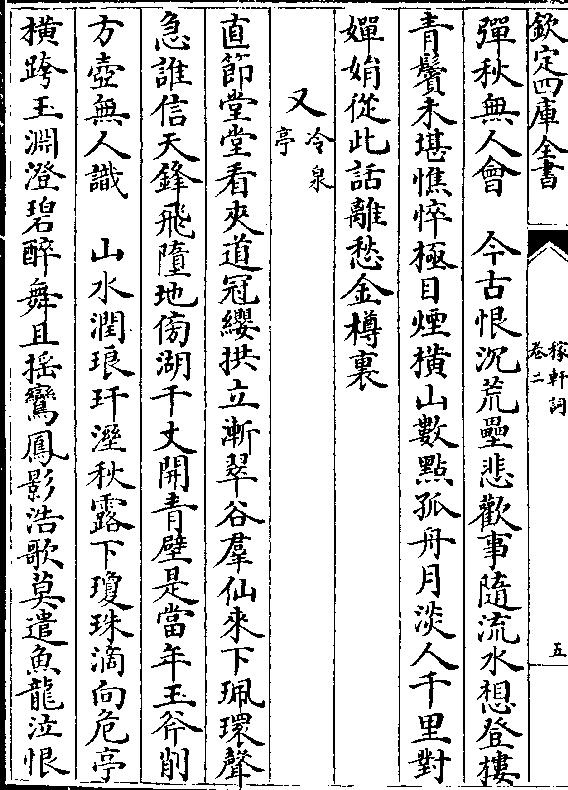 欽定四庫全書
稼軒詞
卷二
五
彈秋無人會　今古恨沉荒壘悲歡事隨流水想登樓
青鬢未堪憔悴極目煙橫山數點孤舟月淡人千里對
嬋娟從此話離愁金樽裏
又冷泉亭
直節堂堂看夾道冠纓拱立漸翠谷羣仙來下珮環聲
急誰信天鋒飛墮地傍湖千丈開青壁是當年玉斧削
方壺無人識　山水潤琅玕溼秋露下瓊珠滴向危亭
橫跨玉淵澄碧醉舞且搖鸞鳳影浩歌莫遣魚龍泣恨